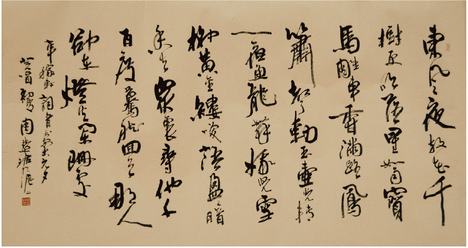 東風夜放花千
樹更吹落星如雨寶
馬雕車香滿路鳳
簫聲動玉壺光轉
一夜魚龍舞蛾兒雪
柳黃金縷笑語盈盈暗
香去眾裏尋他千
百度驀然回首那人
卻在燈火闌珊處
辛稼軒詞青玉案元夕
癸酉